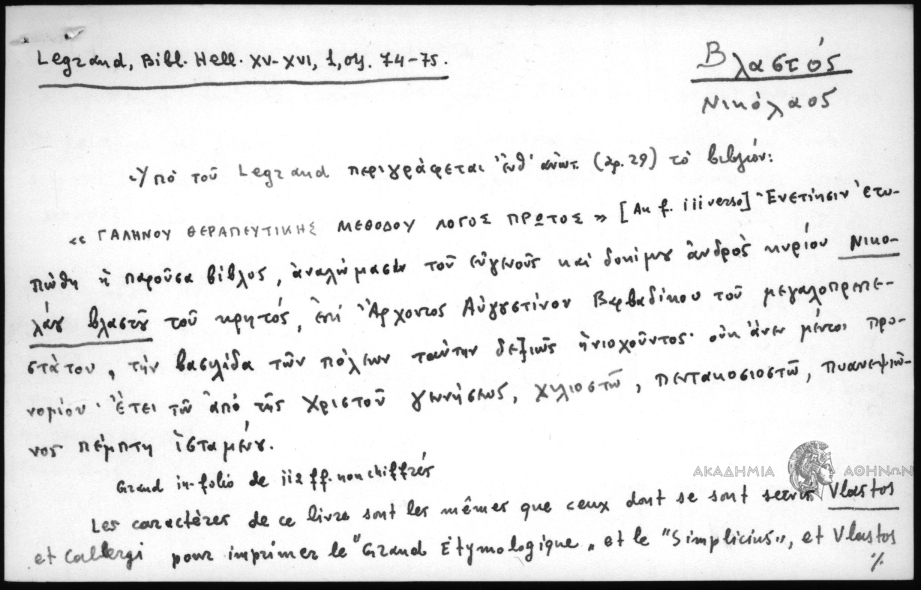 Legrand, Bibl. Hell. XV-XVI, 1, σσ. 74-75.
Βλαστός
Νικόλαος
Ὑπὸ τοῦ Legrand περιγράφεται ἔνθ' ἀνωτ. (ἀρ. 29) τὸ βιβλίον:
« ΓΑΛΗΝΟΥ ΘΕΡΑΠΕΥΤΙΚΗΣ ΜΕΘΟΔΟΥ ΛΟΓΟΣ ΠΡΩΤΟΣ » [Au f. iii verso] Ἐνετίησιν ἐτυ-
πώθη ἡ παροῦσα βίβλος, ἀναλώμασιν τοῦ εὐγενοῦς καὶ δοκίμου ἀνδρὸς κυρίου Νικο-
λάου βλαστοῦ τοῦ κρητός, ἐπὶ Ἄρχοντος Αὐγουστίνου Βερβαδίκου τοῦ μεγαλοπρεπε-
στάτου, τὴν βασιλίδα τῶν πόλεων ταύτην δεξιῶς ἡνιοχοῦντος· οὐκ ἄνευ μέντοι προ-
νομίου· Ἔτει τῶ ἀπὸ τῆς Χριστοῦ γεννήσεως, χιλιοστῶ, πεντακοσιοστῶ, πυανεψιῶ-
νος πέμπτη ἱσταμένου.
Grand in-folio de 112 ff. non chiffrés
ΑΚΑΔΗΜΙΑ ΑΘΗΝΩΝ
Les caractères de ce livre sont les mêmes que ceux dont se sont servis Vlastos
et Callergi pour imprimer le "Grand Etymologique" et le "Simplicius", et Vlastos
%